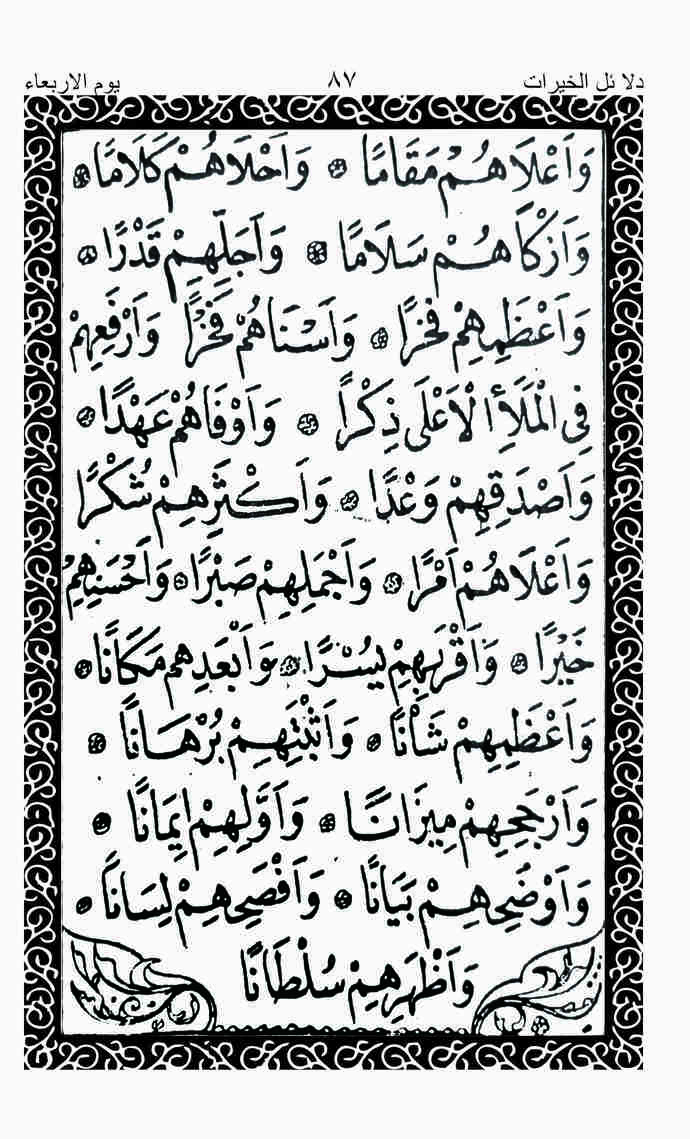 دلائل الخيرات ٨٧ يوم الاربعاء
وَاَعْلَاهُمْ مَقَامًا ۞ وَاَحْلَاهُمْ كَلَامًا ۞
وَاَزْكَاهُمْ سَلَامًا ۞ وَاَجَلِّهِمْ قَدْرًا ۞
وَاَعْظَمِهِمْ فَخْرًا ۞ وَاَسْنَاهُمْ فَخْرًا وَاَرْفَعِهِمْ
فِى الْمَلَأِ الْاَعْلَى ذِكْرًا ۞ وَاَوْفَاهُمْ عَهْدًا ۞
وَاَصْدَقِهِمْ وَعْدًا ۞ وَاَكْثَرِهِمْ شُكْرًا
وَاَعْلَاهُمْ اَمْرًا ۞ وَاَجْمَلِهِمْ صَبْرًا ۞ وَاَحْسَنِهِمْ
خَيْرًا ۞ وَاَقْرَبِهِمْ يُسْرًا ۞ وَاَبْعَدِهِمْ مَكَانًا ۞
وَاَعْظَمِهِمْ شَأْنًا ۞ وَاَثْبَتِهِمْ بُرْهَانًا ۞
وَاَرْجَحِهِمْ مِيزَانًا ۞ وَاَوَّلِهِمْ اِيمَانًا ۞
وَاَوْضَحِهِمْ بَيَانًا ۞ وَاَفْصَحِهِمْ لِسَانًا ۞
وَاَظْهَرِهِمْ سُلْطَانًا